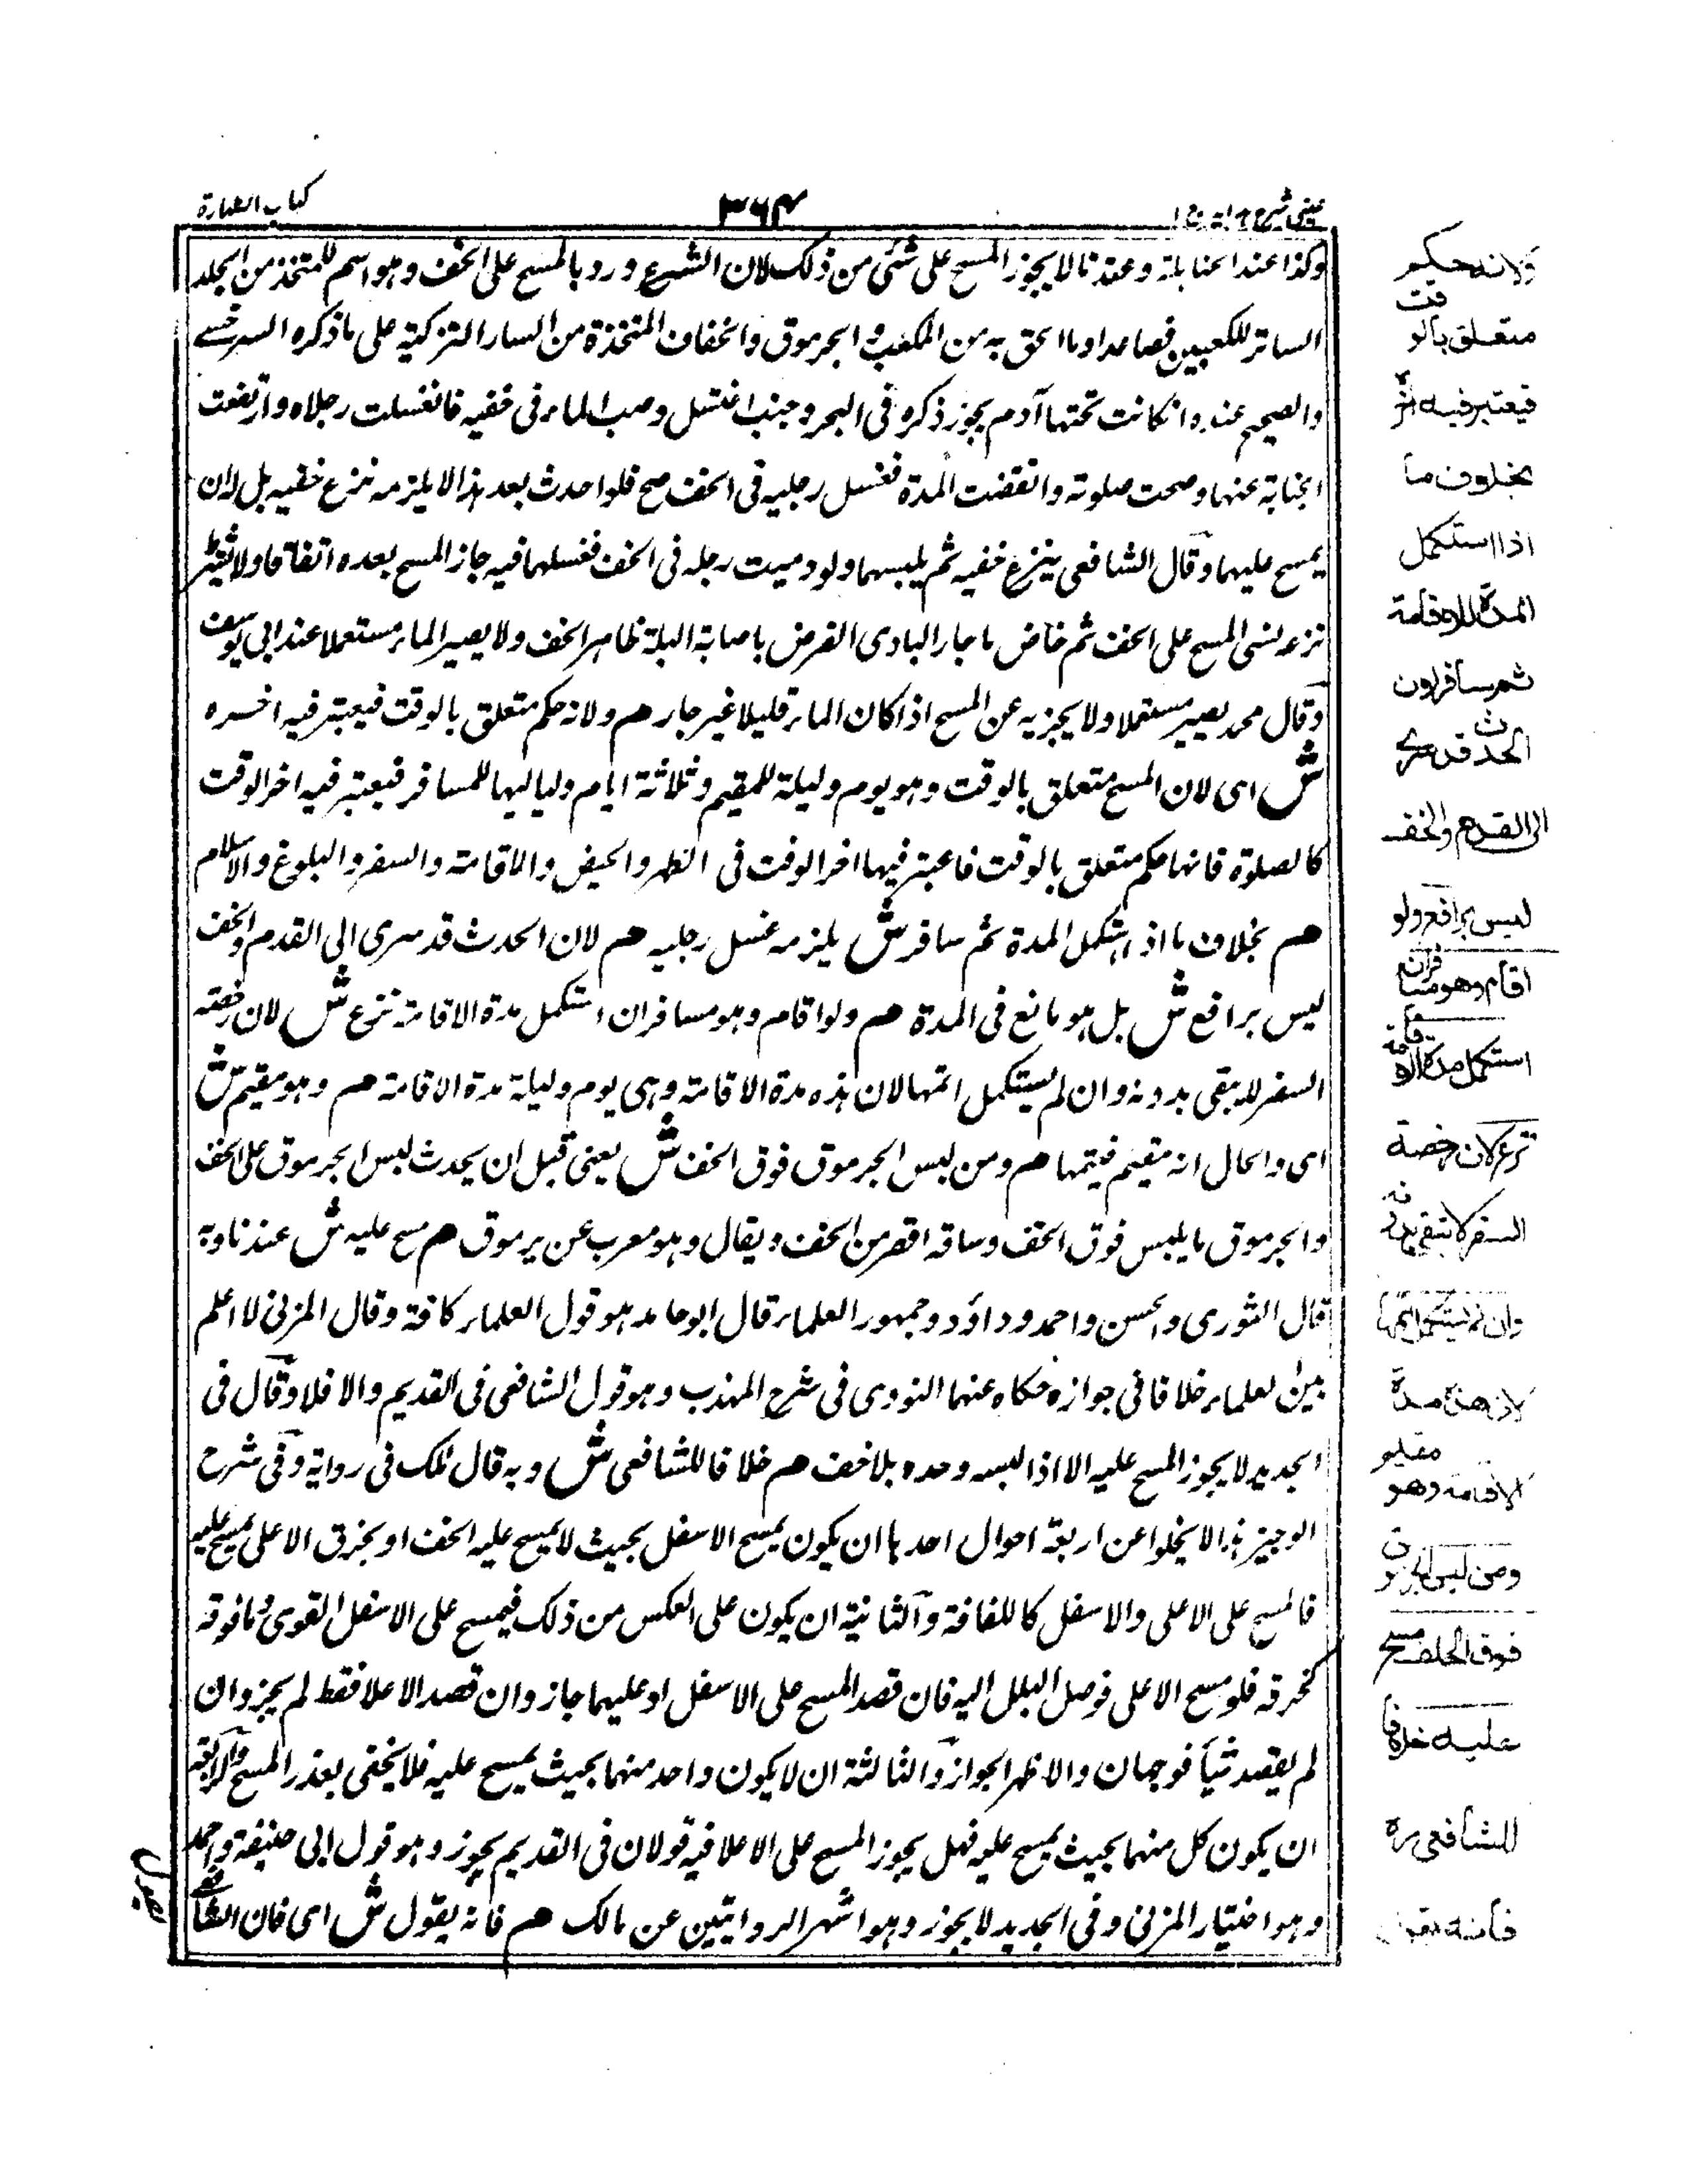 عینی شرح ہدایہ ج ۱
۳۶۴
کتاب الطہارة
وکذا عند الحنابلة وعندنا لا یجوز المسح علی شئی من ذلک لان الشرع ورد بالمسح علی الخف وهو اسم للمتخذ من الجلد
الساتر للکعبین فصاعدا وما الحق به من المکعب والجرموق والخفاف المتخذة من الترکیة علی ما ذکره السرخسے
والصحیح عنده وان کانت تحتها آدم یجوز ذکره فی البحر وجنب اغتسل وصب الماء فی خفیه فانغسلت رجلاه وارتفعت
الجنابة عنهما وصحت صلوته وانقضت المدة فغسل رجلیه فی الخف صح فلو احدث بعد هذا لا یلزمه نزع خفیه بل لان
یمسح علیهما وقال الشافعی ینزع خفیه ثم یلبسهما ولو دمیت رجله فی الخف فغسلهما فیه جاز المسح بعده اتفاقا ولا یشترط
نزعه نسی المسح علی الخف ثم خاض ماء جاریا ادی الفرض باصابة البلة ظاهر الخف ولا یصیر الماء مستعملا عند ابی یوسف
وقال محمد یصیر مستعملا ولا یجزیه عن المسح اذا کان الماء قلیلا غیر جار هم ولانه حکم متعلق بالوقت فیعتبر فیه اخره
ش ای لان المسح متعلق بالوقت وهو یوم ولیلة للمقیم وثلاثة ایام ولیالیها للمسافر فیعتبر فیه اخر الوقت
کالصلوة فانها حکم متعلق بالوقت فاعتبر فیها اخر الوقت فی الطهر والحیض والاقامة والسفر والبلوغ والاسلام
هم بخلاف ما اذا استکمل المدة ثم سافر ش یلزمه غسل رجلیه هم لان الحدث قد سری الی القدم والخف
لیس برافع ش بل هو مانع فی المدة هم ولو اقام وهو مسافر ان استکمل مدة الاقامة نزع ش لان رخصة
السفر لا یبقی بدونه وان لم یستکمل اتمها لان هذه مدة الاقامة وهی یوم ولیلة مدة الاقامة هم وهو مقیم ش
ای والحال انه مقیم فیتمها هم ومن لبس الجرموق فوق الخف ش یعنی قبل ان یحدث لبس الجرموق علی الخف
والجرموق ما یلبس فوق الخف وساقه اقصر من الخف ویقال وهو معرب عن یرموق هم مسح علیه ش عندنا وبه
قال الثوری والحسن واحمد وداؤد وجمهور العلماء قال ابو حامد هو قول العلماء کافة وقال المزنی لا اعلم
بین العلماء خلافا فی جوازه حکاه عنهما النووی فی شرح المهذب وهو قول الشافعی فی القدیم والاملا وقال فی
الجدید لا یجوز المسح علیه الا اذا لبسه وحده بلا خف هم خلافا للشافعی ش وبه قال ملک فی روایة وفی شرح
الوجیز هذا لا یخلوا عن اربعة احوال احدها ان یکون یمسح الاسفل بحیث لا یمسح علیه الخف او بخرق الاعلی یمسح علیه
فالمسح علی الاعلی والاسفل کاللفافة والثانیة ان یکون علی العکس من ذلک فیمسح علی الاسفل القوی وما فوقه
کخرقه فلو مسح الاعلی فوصل البلل الیه فان قصد المسح علی الاسفل او علیهما جاز وان قصد الاعلا فقط لم یجز وان
لم یقصد شیأ فوجهان والاظهر الجواز والثالثة ان لا یکون واحد منهما بحیث یمسح علیه فلا یخفی بعذر المسح والرابعة
ان یکون کل منهما بحیث یمسح علیه فهل یجوز المسح علی الاعلا فیه قولان فی القدیم یجوز وهو قول ابی حنیفة واحمد
وهو اختیار المزنی وفی الجدید لا یجوز وهو اشهر الروایتین عن مالک هم فانه یقول ش ای فان الشافعے
ولانه حکم
متعلق بالوقت
فیعتبر فیه اخره
بخلاف ما
اذا استکمل
المدة للاقامة
ثم سافر لان
الحدث قد سری
الی القدم والخف
لیس برافع ولو
اقام وهو مسافر ان
استکمل مدة الاقامة
نزع لان رخصة
السفر لا تبقی بدونه
وان لم یستکمل اتمها
لان هذه مدة
الاقامة وهو مقیم
ومن لبس الجرموق
فوق الخف مسح
علیه خلافا
للشافعی ره
فانه یقول